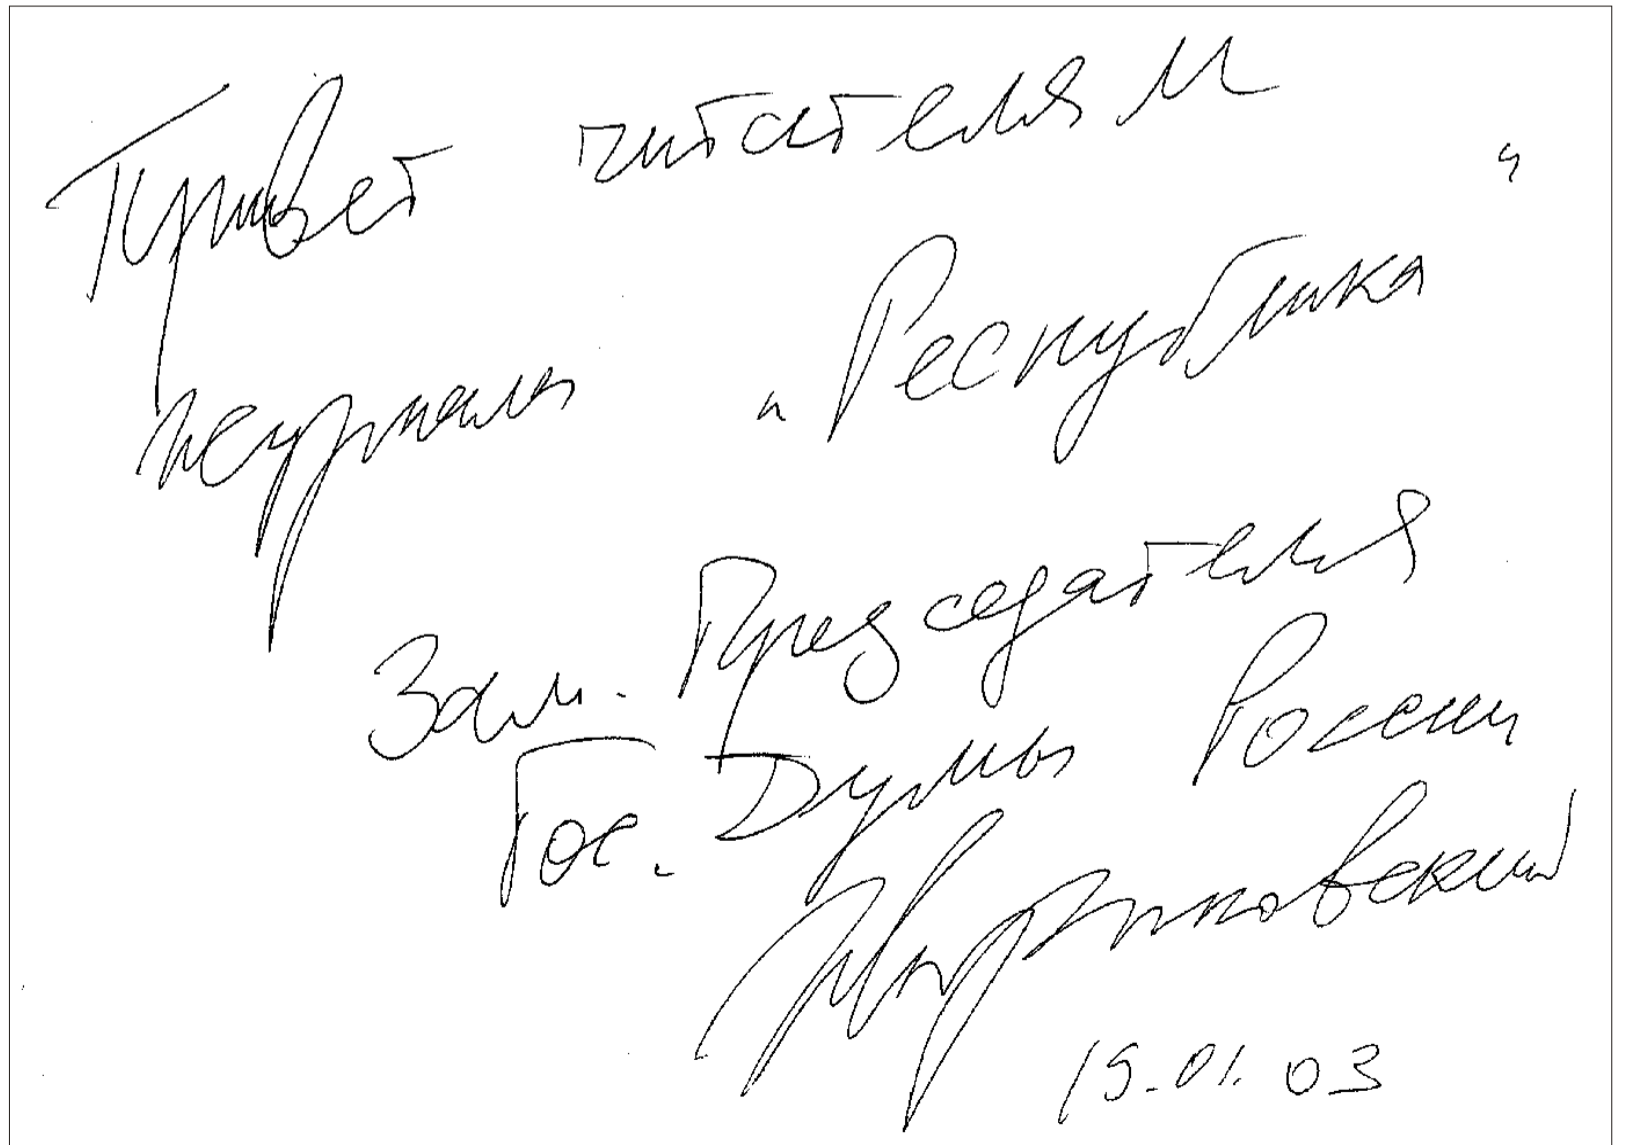 Привет читателям
журнала „Республика“
Зам. Председателя
Гос. Думы России
Жириновский
15.01.03